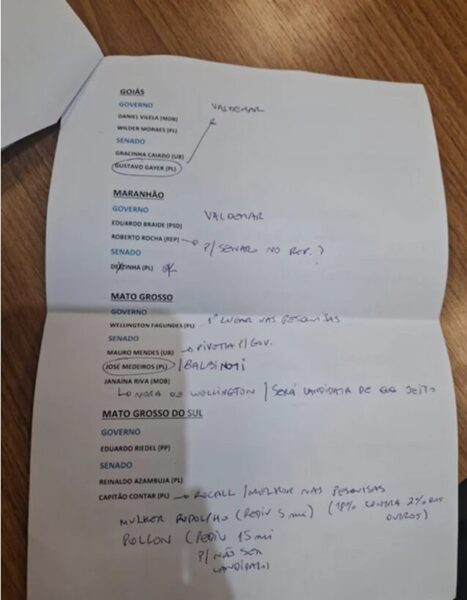 GOIÁS
GOVERNO
VALDEMAR
DANIEL VILELA (MDB)
WILDER MORAES (PL)
SENADO
GRACINHA CAIADO (UB)
GUSTAVO GAYER (PL)
MARANHÃO
GOVERNO
VALDEMAR
EDUARDO BRAIDE (PSD)
ROBERTO ROCHA (REP)
P/ SENADO NO REP. ?
SENADO
DETINHA (PL) OK
MATO GROSSO
GOVERNO
WELLINGTON FAGUNDES (PL) 1º LUGAR NAS PESQUISAS
SENADO
MAURO MENDES (UB) PIVETTA P/ GOV.
JOSÉ MEDEIROS (PL) /
JANAÍNA RIVA (MDB)
NORA DE WELLINGTON / SERÁ CANDIDATA DE JEITO
MATO GROSSO DO SUL
GOVERNO
EDUARDO RIEDEL (PP)
SENADO
REINALDO AZAMBUJA (PL)
CAPITÃO CONTAR (PL) RECALL / MELHOR NAS PESQUISAS
MULHER RODOLFHO (PEDIU 5 mi) (18% CONTRA 2% DOS OUTROS)
POLLON (PEDIU 15 mi
P/ NÃO SER
CANDIDATO)